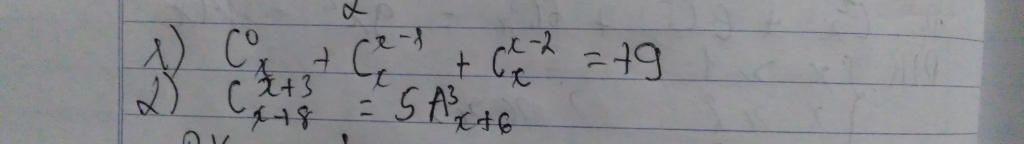 1) C⁰ₓ + Cₓˣ⁻¹ + Cₓˣ⁻² = 79
2) Cₓ₊₈ˣ⁺³ = 5A³ₓ₊₆